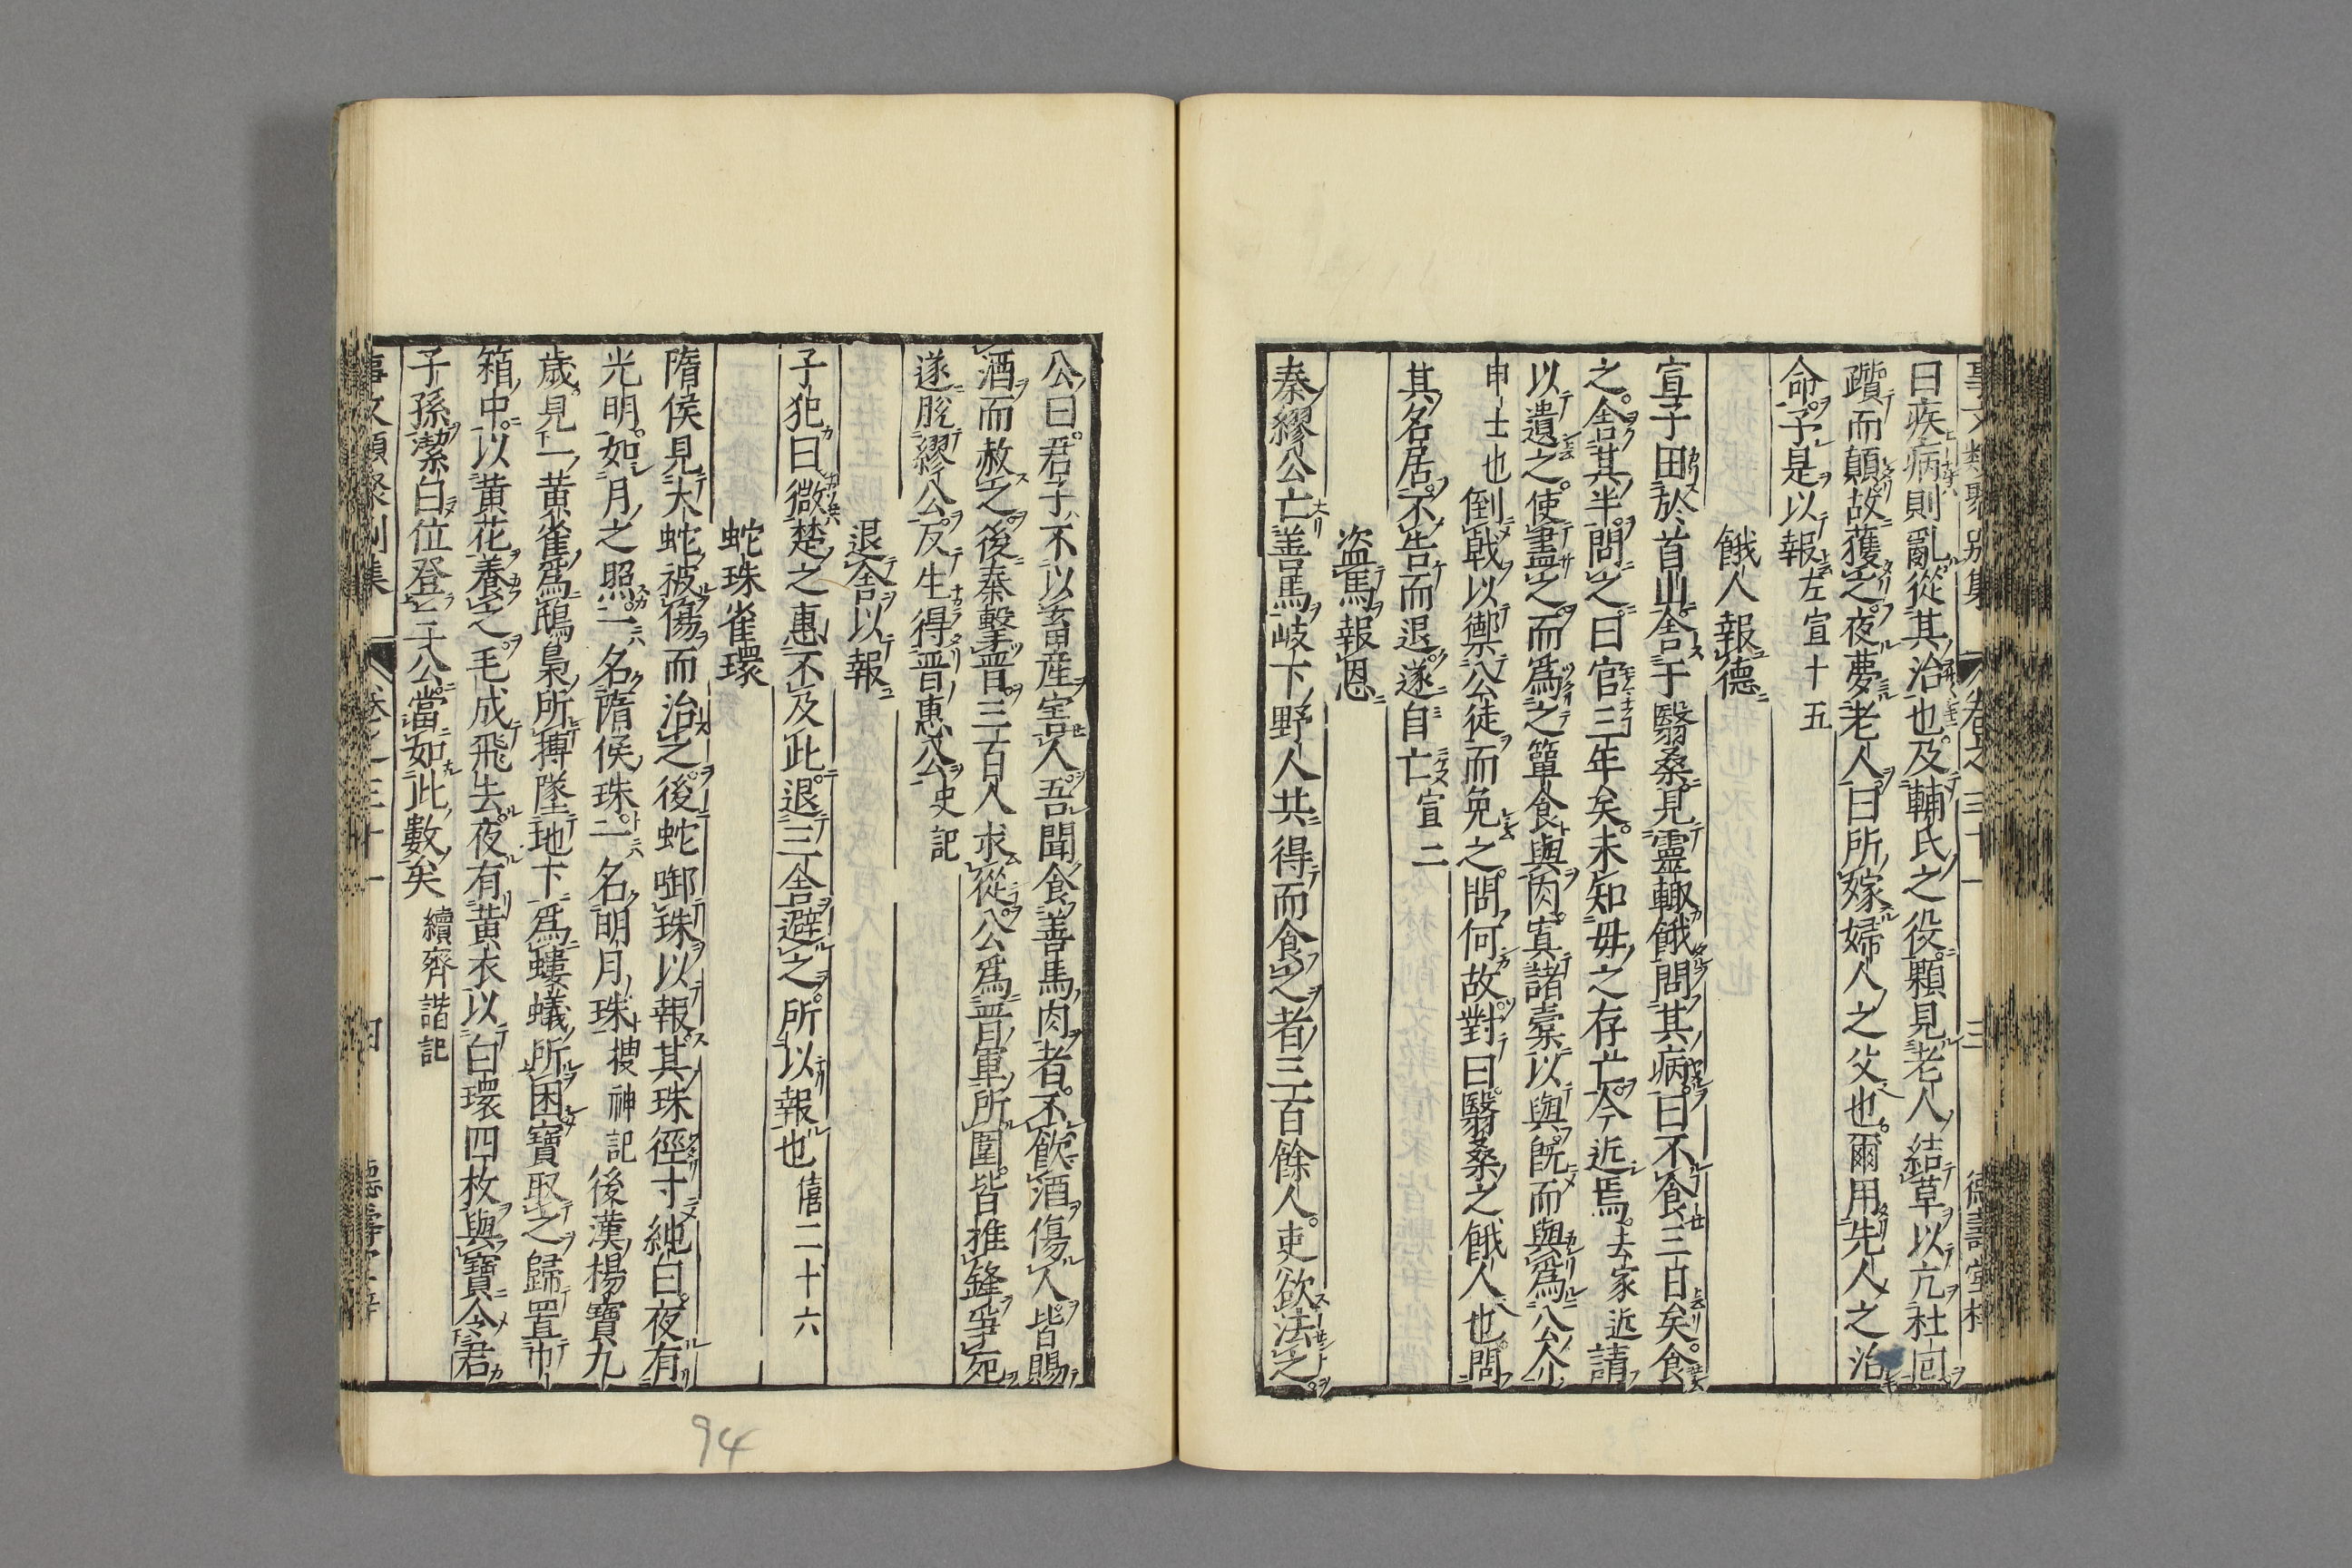 事文類聚別集 卷之三十一 三 德壽堂梓
曰疾病則亂從其治也及輔氏之役顆見老人結草以亢杜回
躓而顛故獲之夜夢老人曰所嫁婦人之父也爾用先人之治
命予是以報左宣十五
餓人報德
宣子田於首山舍于翳桑見靈輒餓問其病曰不食三日矣食
之舍其半問之曰宦三年矣未知毋之存亡今近焉去家近請
以遺之使盡之而爲之簞食與肉寘諸橐以與之既而與爲公介
申士也倒戟以禦公徒而免之問何故對曰翳桑之餓人也問
其名居不告而退遂自亡宣二
盜馬報恩
秦繆公亡善馬岐下野人共得而食之者三百餘人吏欲法之
公曰君子不以畜産害人吾聞食善馬肉者不飲酒傷人皆賜
酒而赦之後秦擊晋三百人求從公公爲晋軍所圍皆推鋒爭死
遂脫繆公反生得晋惠公史記
退舍以報
子犯曰微楚之惠不及此退三舍避之所以報也僖二十六
蛇珠雀環
隋侯見大蛇被傷而治之後蛇啣珠以報其珠徑寸純白夜有
光明如月之照一名隋侯珠一名明月珠搜神記後漢楊寶九
歲見一黃雀爲鴟梟所搏墜地下爲螻蟻所困寶取之歸置巾
箱中以黃花養之毛成飛去夜有黃衣以白環四枚與寶令君
子孫潔白位登三公當如此數矣續齊諧記
事文類聚別集 卷之三十一 四 德壽堂梓
94